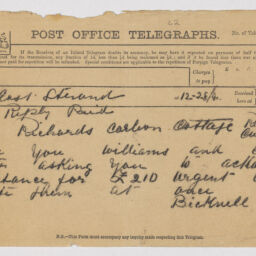 62
POST OFFICE TELEGRAPHS.
No. of Tele
If the Receiver of an Inland Telegram doubts its accuracy, he may have it repeated on payment of half
for its transmission, any fraction of 1d. less than ½d. being reckoned as ½d.; and if it be found that there was
paid for repetition will be refunded. Special conditions are applicable to the repetition of Foreign Telegrams.
Charges to pay
East Strand 12-25
Received here
Reply Paid
Richards Carbon Cottage
You Williams and
asking You to
for £210 urgent
them at once
Bicknell
N.B.—This Form must accompany any inquiry made respecting this Telegram.